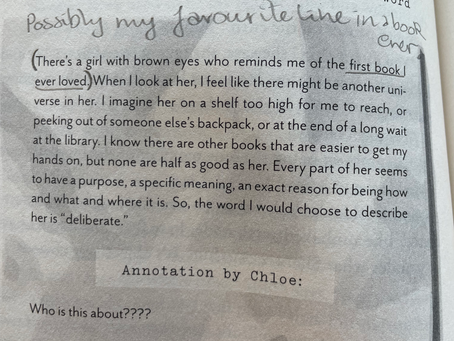 word
Possibly my favourite line in a book
ever
(There's a girl with brown eyes who reminds me of the first book I
ever loved.) When I look at her, I feel like there might be another uni-
verse in her. I imagine her on a shelf too high for me to reach, or
peeking out of someone else's backpack, or at the end of a long wait
at the library. I know there are other books that are easier to get my
hands on, but none are half as good as her. Every part of her seems
to have a purpose, a specific meaning, an exact reason for being how
and what and where it is. So, the word I would choose to describe
her is “deliberate.”
Annotation by Chloe:
Who is this about????